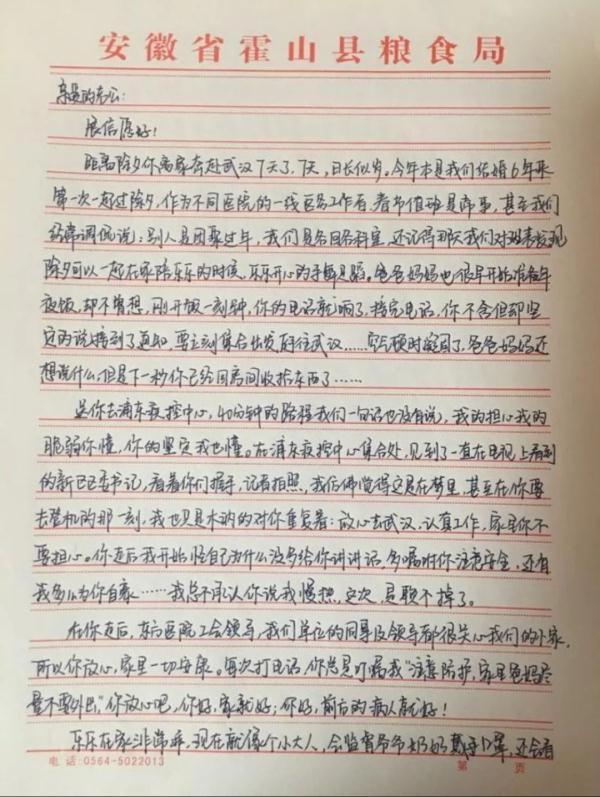 安徽省霍山县粮食局
亲爱的老公:
展信愿好!
距离除夕你离家奔赴武汉7天了,7天,日长似岁。今年本是我们结婚6年来
第一次一起过除夕,作为不同医院的一线医务工作者,春节值班是常事,甚至我们
经常调侃说:别人是团聚过年,我们是各回各科室,还记得那天我们对班表发现
除夕可以一起在家陪乐乐的时候,乐乐开心的手舞足蹈。爸爸妈妈也很早开始准备年
夜饭,却不曾想,刚开饭一刻钟,你的电话就响了,接完电话,你不舍但却坚
定的说接到了通知,要立刻集合出发前往武汉……空气顿时凝固了,爸爸妈妈还
想说什么,但是下一秒你已经回房间收拾东西了……
送你去浦东疾控中心,40分钟的路程我们一句话也没有说,我的担心我的
脆弱你懂,你的坚定我也懂。在浦东疾控中心集合处,见到了一直在电视上看到
的新区区委书记,看着你们握手,记者拍照,我仿佛觉得这是在梦里,甚至在你要
去登机的那一刻,我也只是木讷的对你重复着:放心去武汉,认真工作,家里你不
要担心。你走后我开始怪自己为什么没多给你讲讲话,多嘱咐你注意安全,还有
我多么为你自豪……我总不承认你说我慢热,这次,是赖不掉了。
在你走后,东方医院工会领导,我们单位的同事及领导都很关心我们的小家,
所以你放心,家里一切安康。每次打电话,你总是叮嘱我“注意防护,家里爸妈尽
量不要外出,”你放心吧,你好,家就好;你好,前方的病人就好!
乐乐在家非常乖,现在就像个小大人,会监督爷爷奶奶戴好口罩,还会看
电话:0564-5022013 第 页